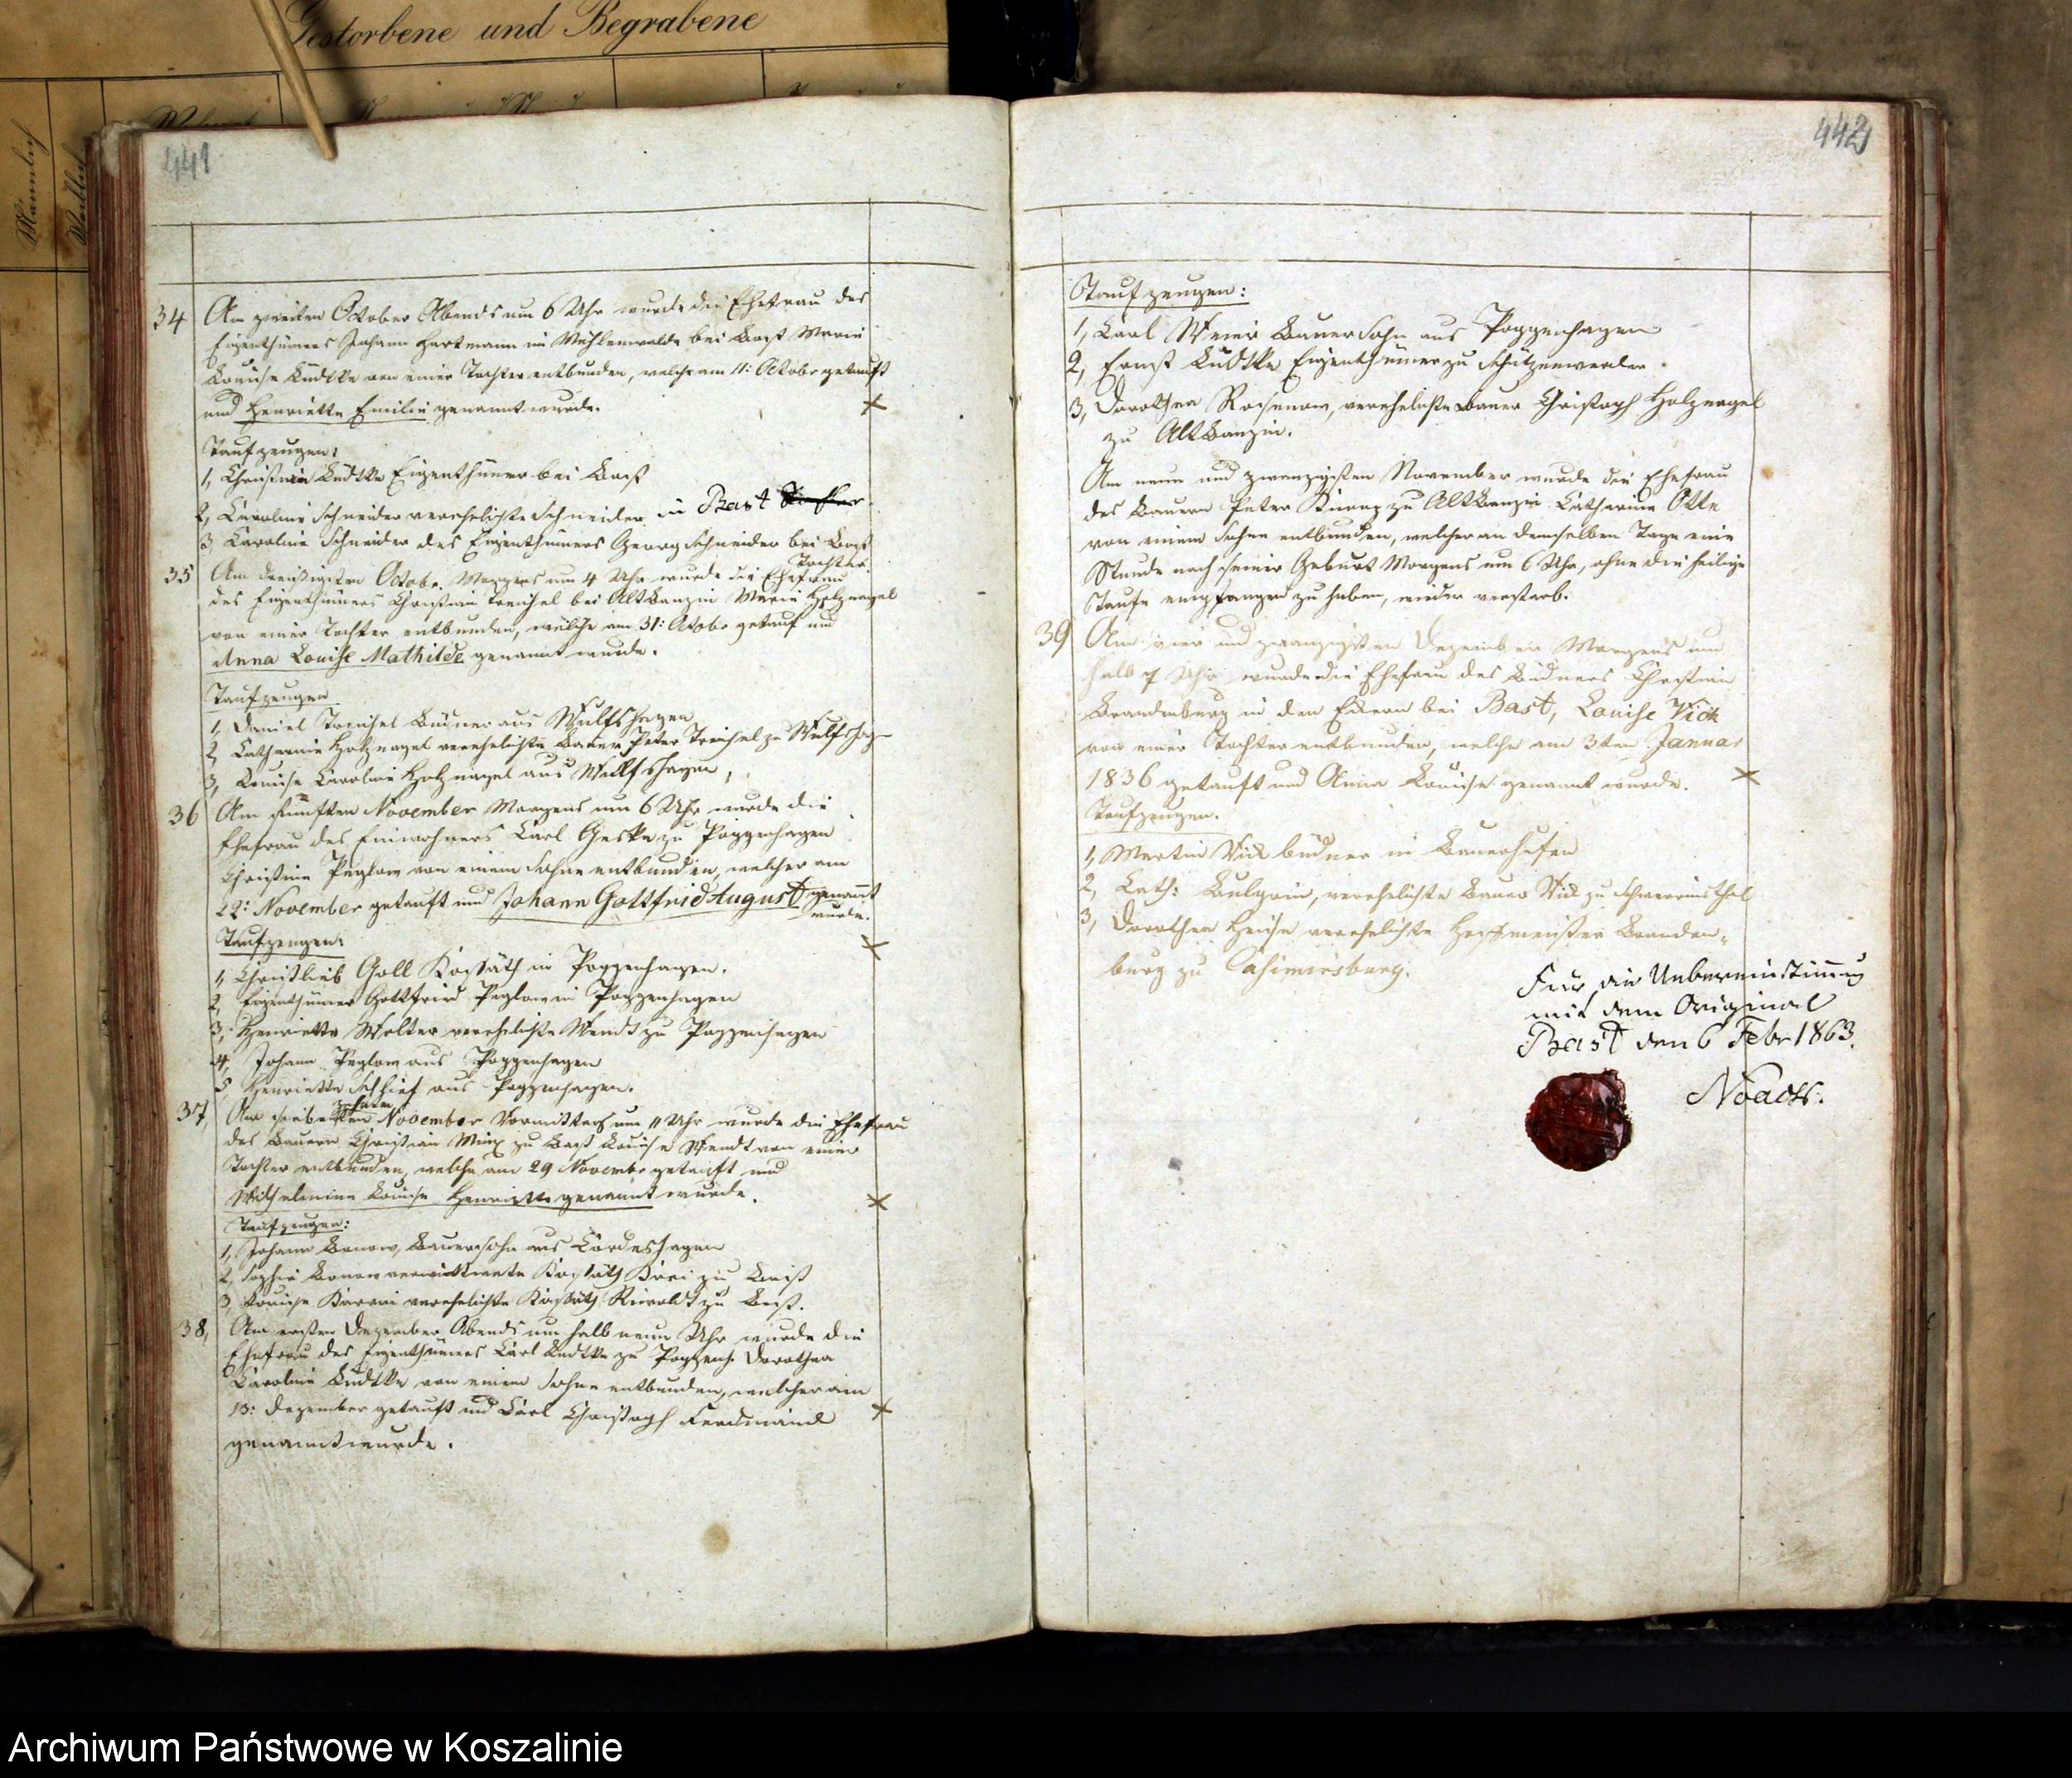 Gestorbene und Begrabene
Männlich
Weiblich
441
34 Am zweiten October Abends um 6 Uhr wurde die Ehefrau des
Eigenthümers Johann Hartmann im Mühlenwalde bei Bast Marie
Louise Lüdtke von einer Tochter entbunden, welche am 11: Octobr getauft
und Henriette Emilie genannt wurde.
Taufzeugen:
1, Christian Lüdtke Eigenthümer bei Bast
2, Caroline Schneider verehelichte Schneider in Bast
3, Caroline Schneider des Eigenthümers Georg Schneider bei Bast
Tochter.
35 Am dreißigsten Octobr. Morgens um 4 Uhr wurde die Ehefrau
des Eigenthümers Christian Treichel bei AltBanzin Marie Holznagel
von einer Tochter entbunden, welche am 31: Octobr getauft und
Anna Louise Mathilde genannt wurde.
Taufzeugen
1, Daniel Treichel Büdner aus Wulfshagen
2, Catharine Holznagel verehelichte Bauer Peter Treichel zu Wulfshag-
3, Louise Caroline Holznagel aus Wulfshagen,
36 Am fünften November Morgens um 6 Uhr wurde die
Ehefrau des Einwohners Carl Geske zu Poggenhagen
Christine Peglow von einem Sohne entbunden, welcher am
22: November getauft und Johann Gottfried August genannt
wurde.
Taufzeugen:
1, Christlieb Goll Kossäth in Poggenhagen.
2, Eigenthümer Gottfried Peglow in Poggenhagen
3, Henriette Wolter verehelichte Wendt zu Poggenhagen
4, Johann Peglow aus Poggenhagen
5 Henriette Schlief aus Poggenhagen.
37, Am siebenzehnten November Vormittags um 11 Uhr wurde die Ehefrau
des Bauern Christian Minx zu Bast Louise Wendt von einer
Tochter entbunden, welche am 29 Novembr getauft und
Wilhelmine Louise Henriette genannt wurde.
Taufzeugen:
1, Johann Bonow, Bauersohn aus Cordeshagen
2, Sophie Bonow verwittwete Kossäth Krei zu Bast
3, Louise verehelichte Kossäth zu Bast.
38, Am ersten Dezember Abends um halb neun Uhr wurde die
Ehefrau des Eigenthümers Carl Lüdtke zu Poggenh. Dorothea
Caroline Lüdtke von einem Sohne entbunden, welcher am
13: Dezember getauft und Carl Christoph Ferdinand
genannt wurde.
442
Taufzeugen:
1, Carl Bauersohn aus Poggenhagen
2, Ernst Lüdtke Eigenthümer zu Schützenwerder.
3, Dorothea Rosenow, verehelichte Bauer Christoph Holznagel
zu AltBanzin.
Am neun und zwanzigsten November wurde die Ehefrau
des Bauern Peter zu AltBanzin Catharine Otto
von einem Sohne entbunden, welcher an demselben Tage eine
Stunde nach seiner Geburt Morgens um 6 Uhr, ohne die heilige
Taufe empfangen zu haben, wieder verstarb.
39 Am vier und zwanzigsten Dezember Morgens um
halb 7 Uhr wurde die Ehefrau des Büdners Christian
Brandenburg in den bei Bast, Louise Vick
von einer Tochter entbunden, welche am 3ten Januar
1836 getauft und Anna Louise genannt wurde.
Taufzeugen.
1, Martin Vick Büdner in Bauerhufen
2, Cath: Bulgrin, verehelichte Bauer Vick zu Schwerinsthal
3, Dorothea Heise verehelichte Hofmeister Branden-
burg zu Casimirsburg.
Für die Uebereinstimmung
mit dem Original
Bast den 6 Febr 1863.
Noack.
Archiwum Państwowe w Koszalinie